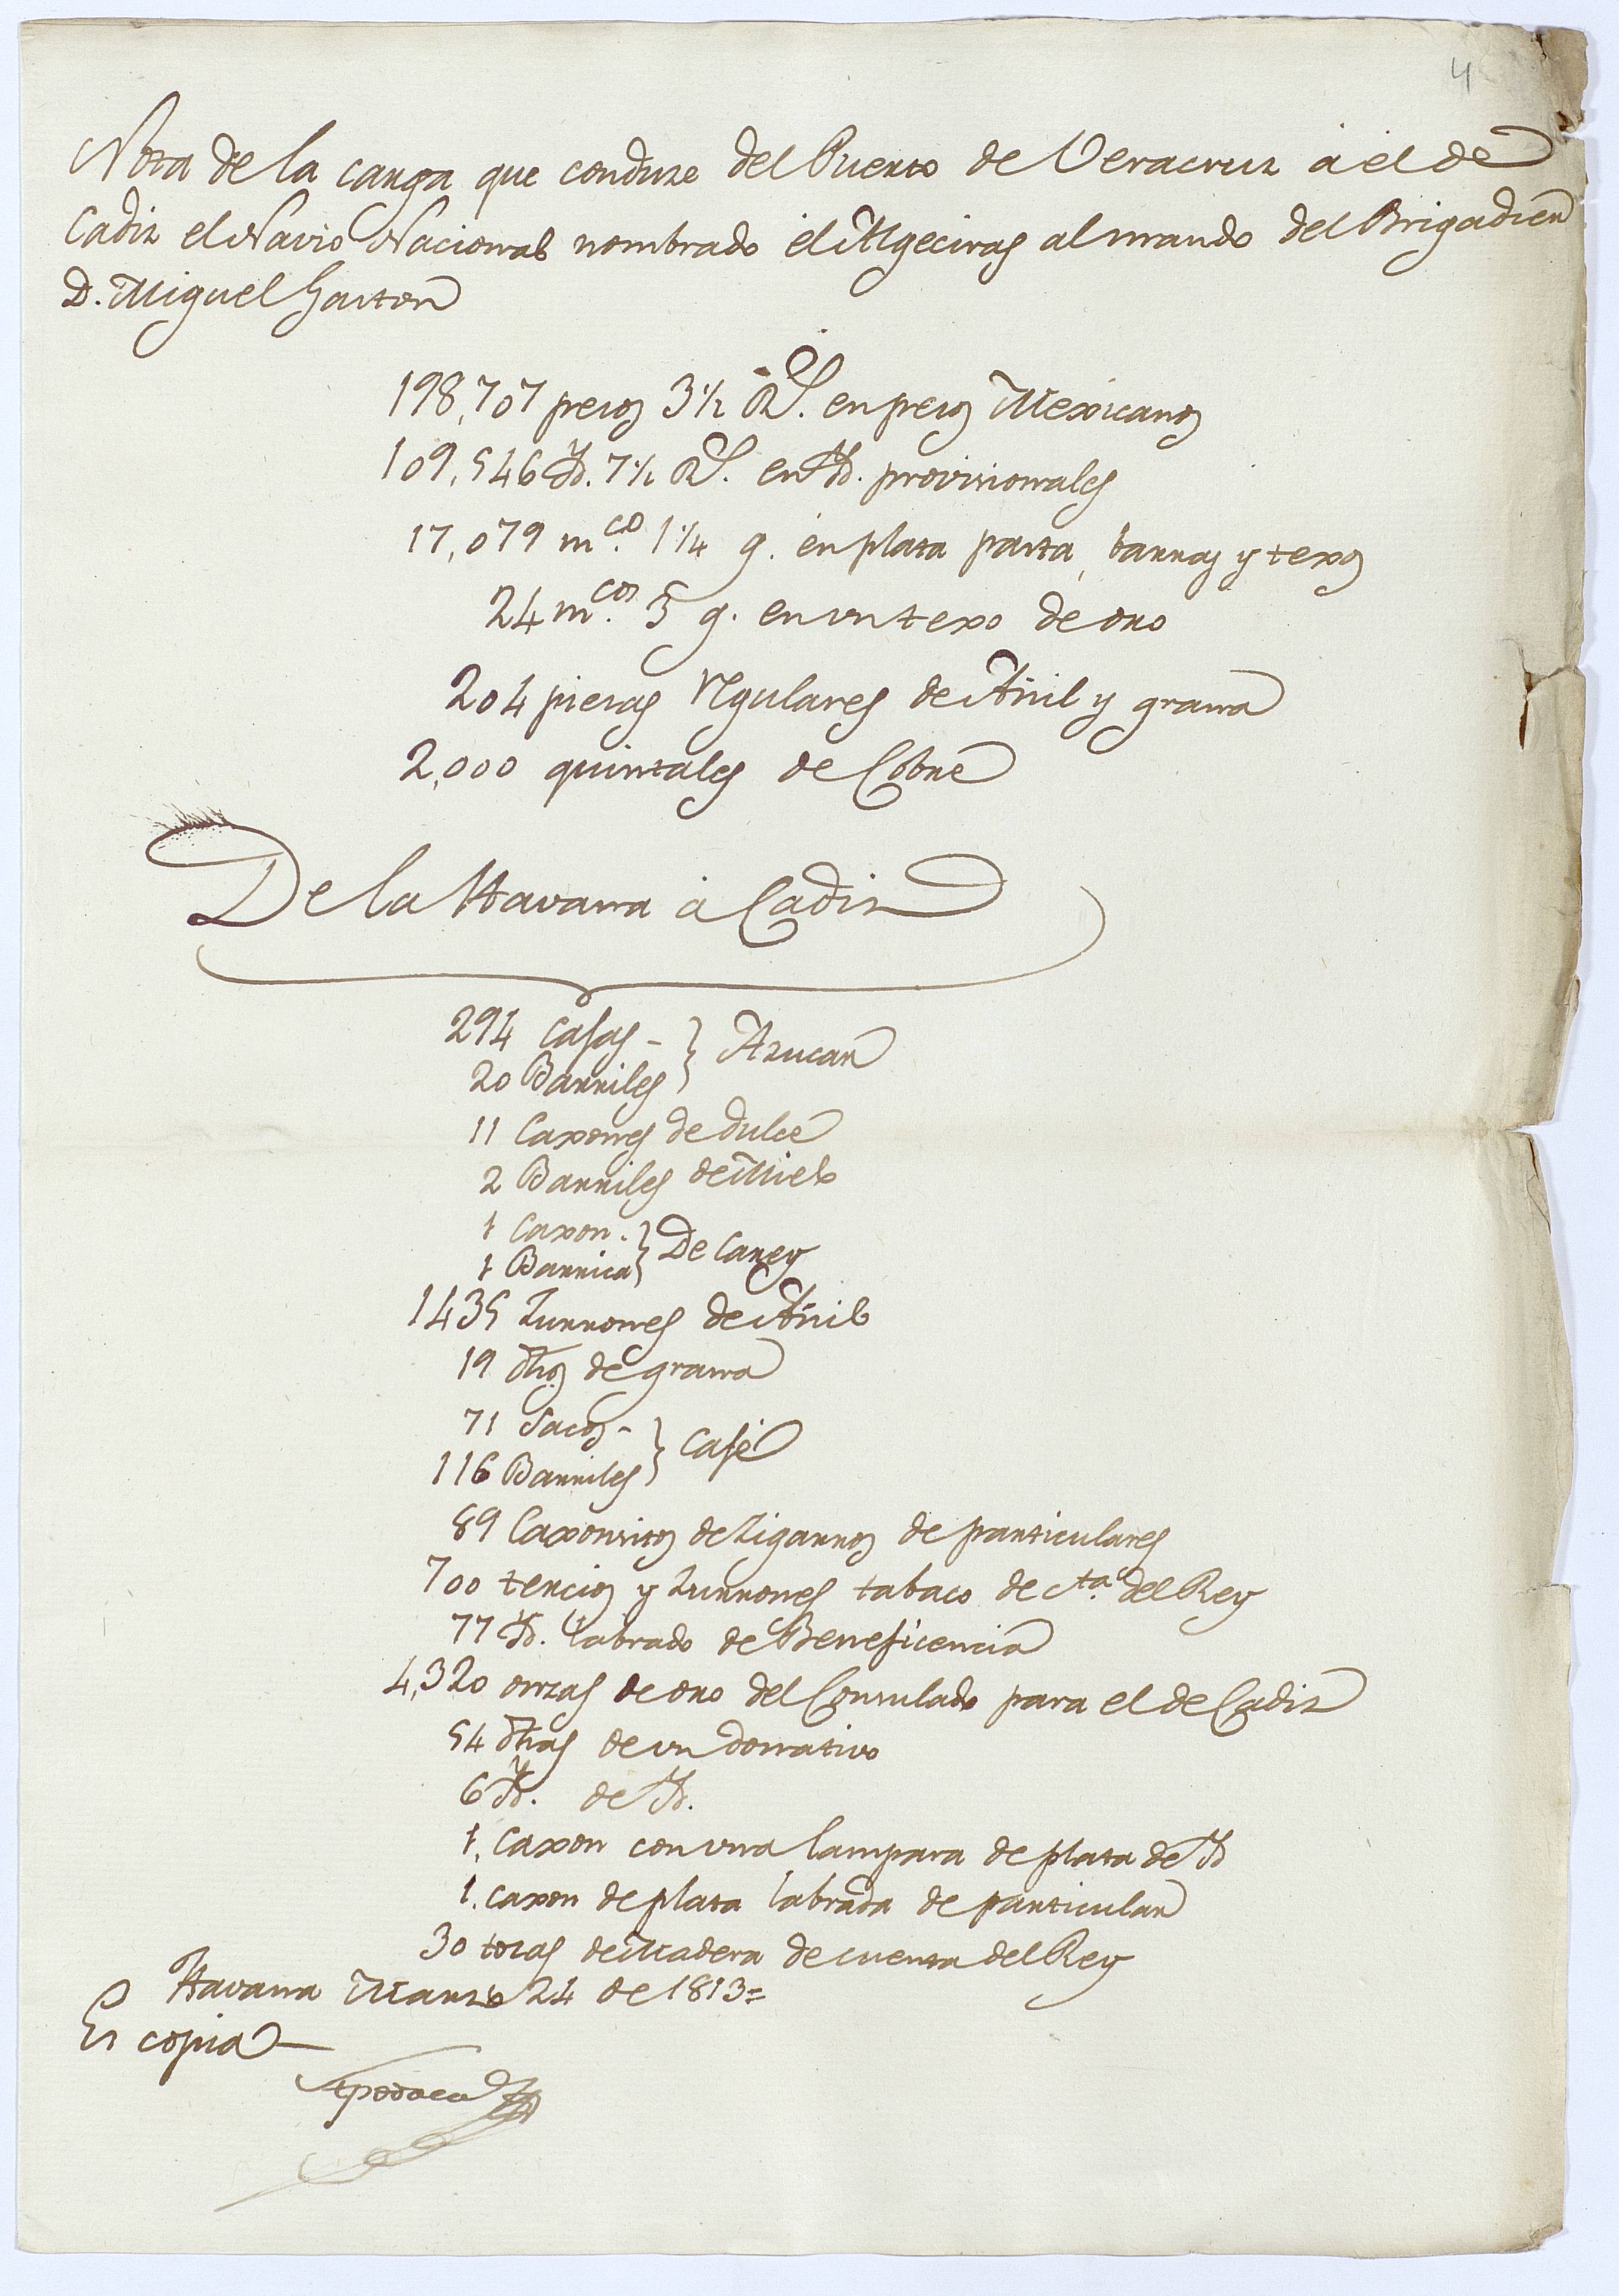 4
Nota de la carga que conduze del Puerto de Veracruz á él de
Cadiz el Navio Nacional nombrado el Algeciras al mando del Brigadier
D. Miguel Gaston
198,707 pesos 3½ Rs. en pesos Mexicanos
109,546 Yd. 7½ Rs. en Yd. provisionales
17,079 mcos. 1¼ g. en plata pasta, barras y texos
24 mcos. 5 g. en un texo de oro
204 piezas regulares de Añil y grana
2,000 quintales de Cobre
De la Havana á Cadiz
294 Cajas - } Azucar
20 Barriles
11 Caxones de dulce
2 Barriles de Miel
1 Caxon. } De Carey
1 Barrica
1435 Zurrones de Añil
19 dhos. de grana
71 Sacos - } Café
116 Barriles
89 Caxoncitos de Zigarros de particulares
700 tercios y zurrones tabaco de cta. del Rey
77 Yd. labrado de Beneficencia
4,320 onzas de oro del Consulado para el de Cadiz
54 dhas de un donativo
6 Yd. de Yd.
1. Caxon con una lampara de plata de Yd
1. caxon de plata labrada de particular
30 tozas de Madera de cuenta del Rey
Havana Marzo 24 de 1813=
Es copia
Apodaca